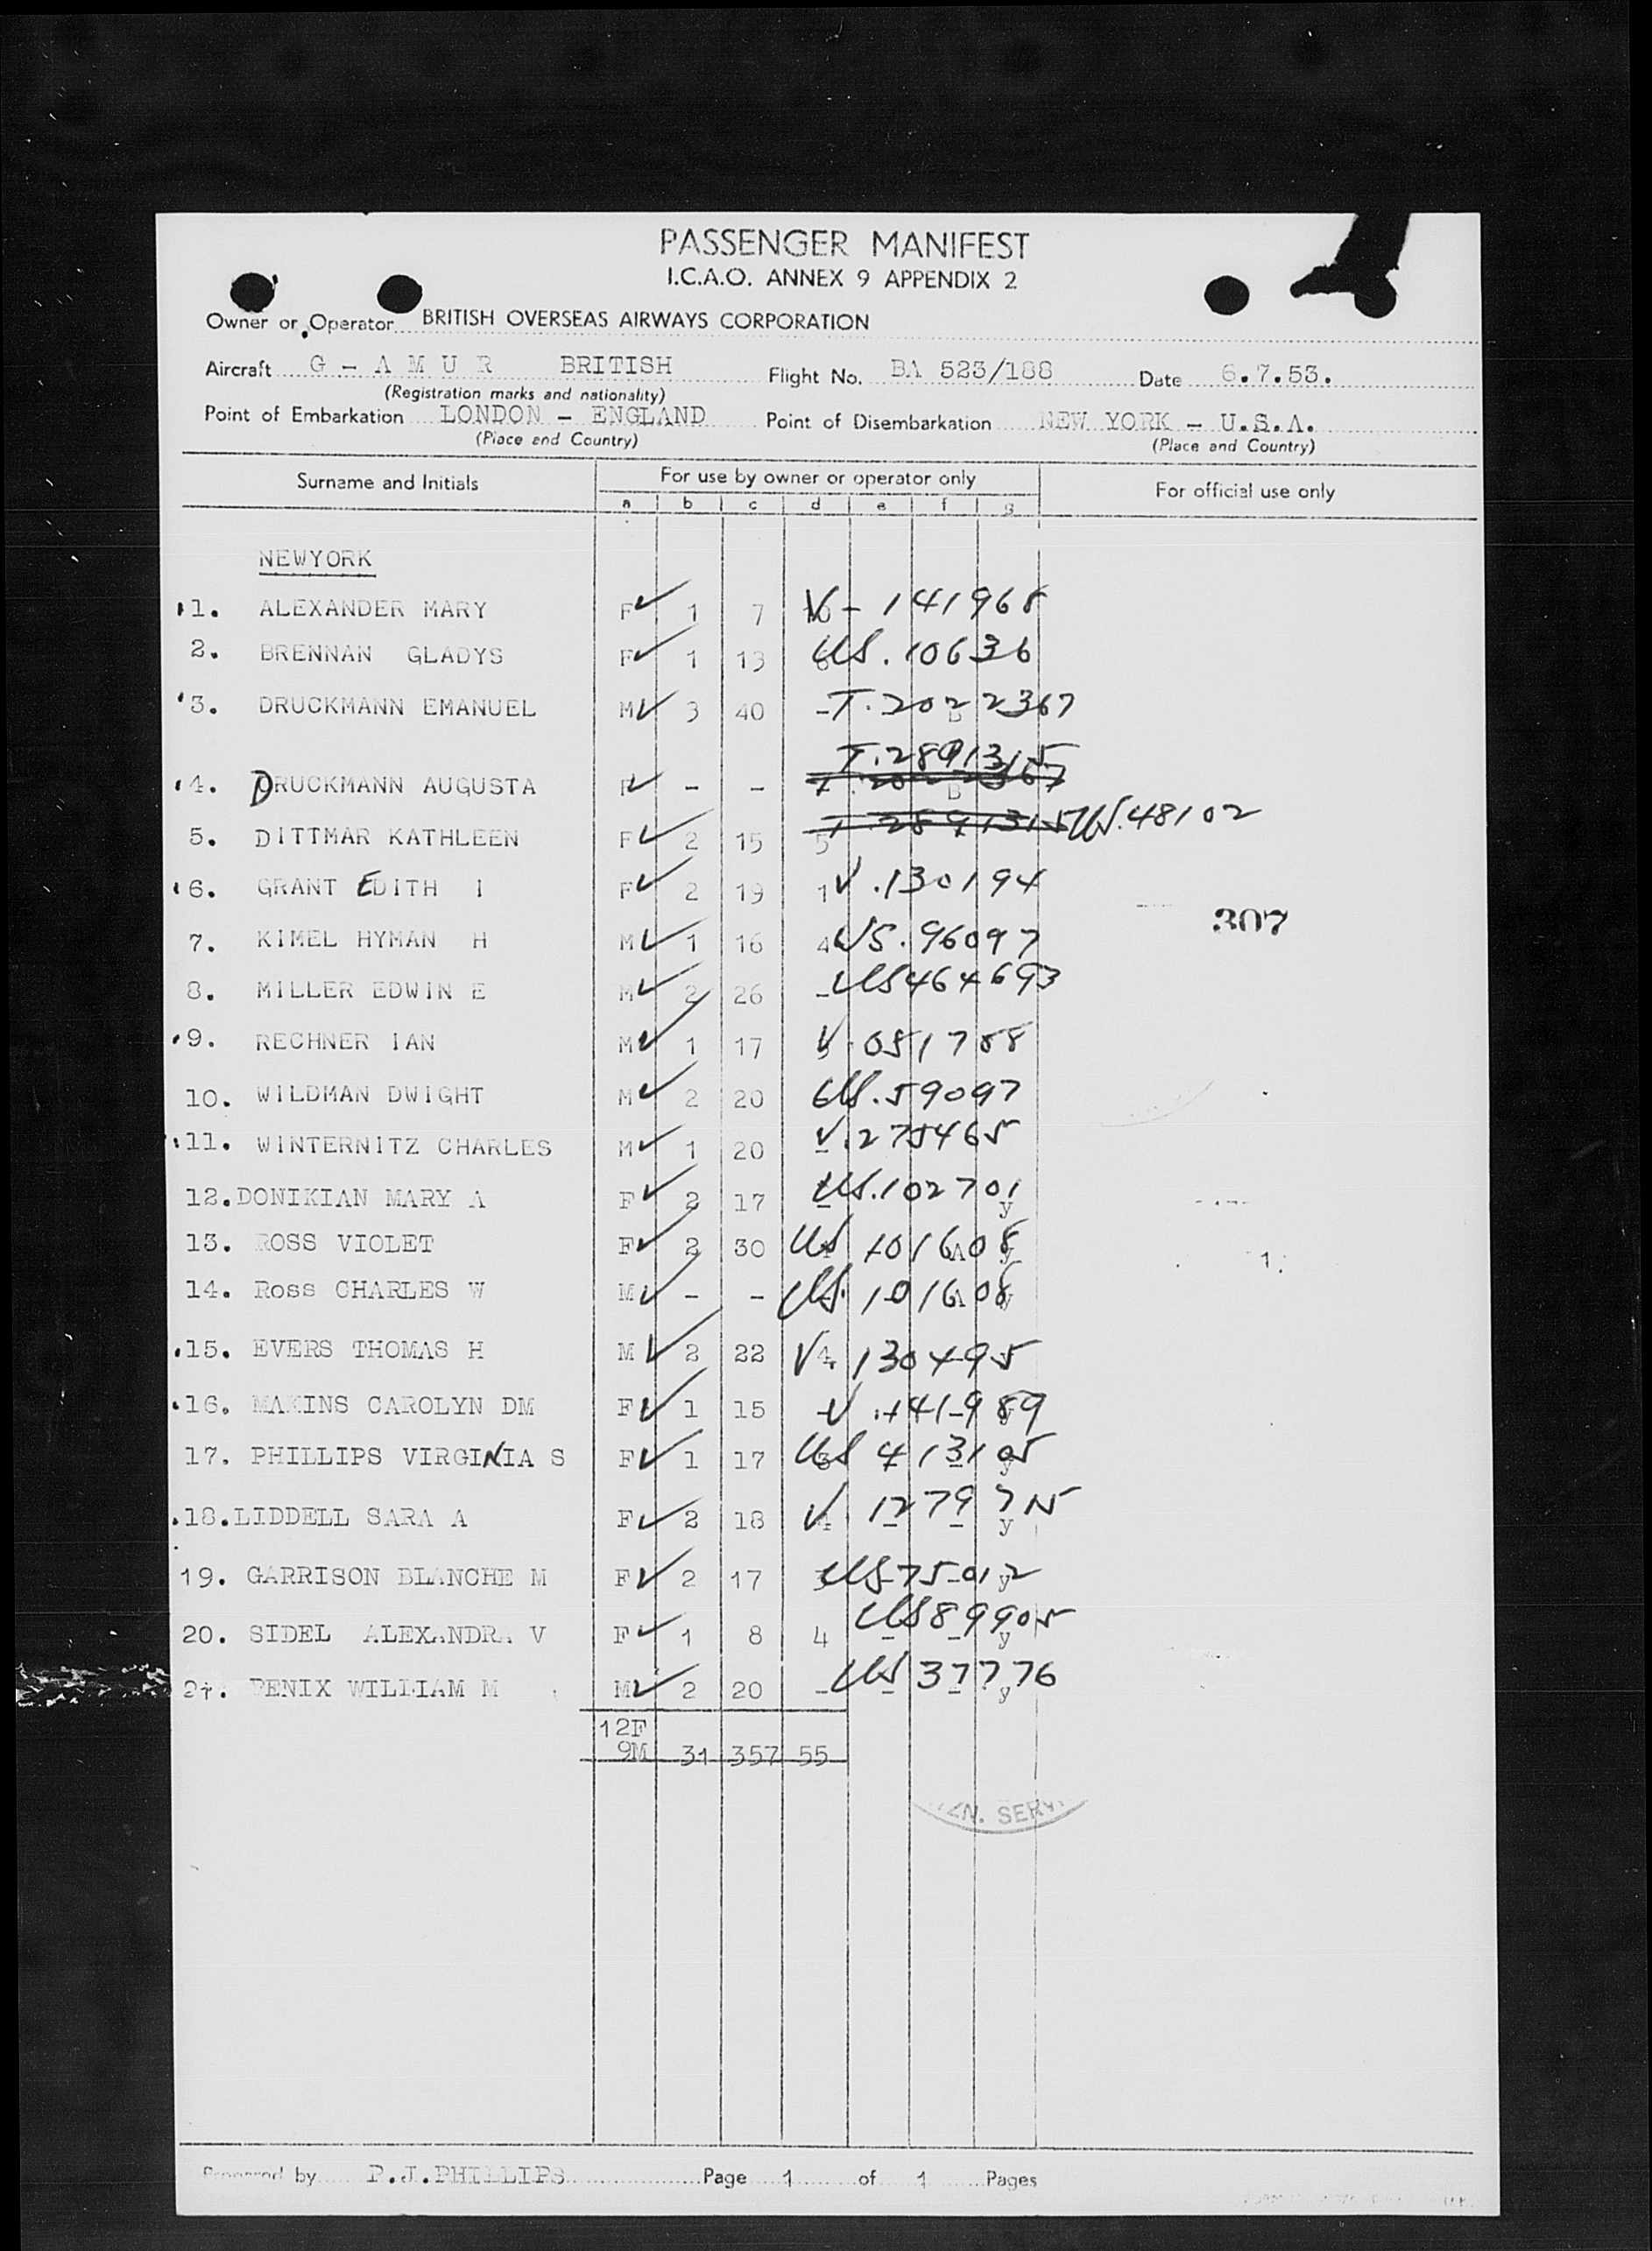 PASSENGER MANIFEST
I.C.A.O. ANNEX 9 APPENDIX 2
Owner or Operator BRITISH OVERSEAS AIRWAYS CORPORATION
Aircraft G - A M U R BRITISH Flight No. BA 523/188 Date 6.7.53.
(Registration marks and nationality)
Point of Embarkation LONDON - ENGLAND Point of Disembarkation NEW YORK - U.S.A.
(Place and Country) (Place and Country)
Surname and Initials For use by owner or operator only For official use only
a b c d e f g
NEWYORK
1. ALEXANDER MARY F 1 7 V - 141968
2. BRENNAN GLADYS F 1 13 US. 10636
3. DRUCKMANN EMANUEL M 3 40 - T. 2022367 B
T. 2891315
4. DRUCKMANN AUGUSTA F - - T. 2022367 B
5. DITTMAR KATHLEEN F 2 15 5 T 2891315 US. 48102
6. GRANT EDITH I F 2 19 1 V. 130194
307
7. KIMEL HYMAN H M 1 16 4 US. 96097
8. MILLER EDWIN E M 2 26 - US 464693
9. RECHNER IAN M 1 17 V. 051788
10. WILDMAN DWIGHT M 2 20 US. 59097
11. WINTERNITZ CHARLES M 1 20 - V. 275465
12. DONIKIAN MARY A F 2 17 - US. 102701 y
13. ROSS VIOLET F 2 30 US 101608 A y
14. Ross CHARLES W M - - US. 101608
15. EVERS THOMAS H M 2 22 4 V 130495
16. MAKINS CAROLYN DM F 1 15 - V. 141989
17. PHILLIPS VIRGINIA S F 1 17 3 US 413105 y
18. LIDDELL SARA A F 2 18 4 V. 127975 - - y
19. GARRISON BLANCHE M F 2 17 3 US 75012 y
20. SIDEL ALEXANDRA V F 1 8 4 US 89905 - - y
21. PENIX WILLIAM M M 2 20 - US 37776 - - y
12F
9M 31 357 55
ZN. SERV
Prepared by P.J.PHILLIPS Page 1 of 1 Pages